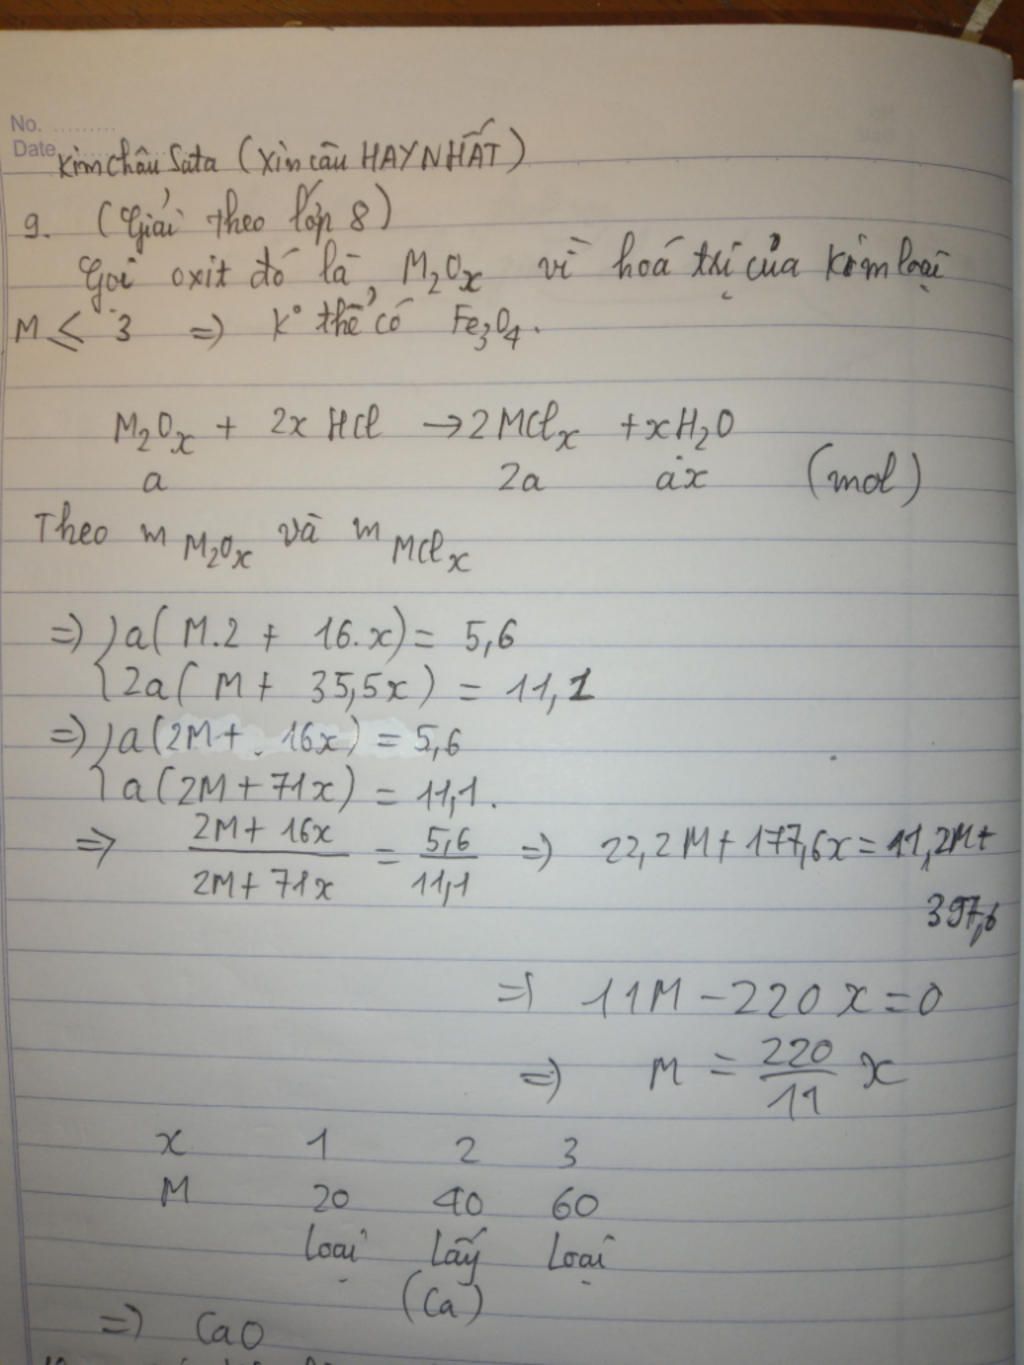 No. ..........
Date
Kim châu Sata (Xin câu HAY NHẤT)
9. (Giải theo lớp 8)
Gọi oxit đó là M₂Oₓ vì hoá trị của kim loại
M ≤ 3 => K° thể có Fe₃O₄.
M₂Oₓ + 2x HCl → 2MClₓ + xH₂O
a 2a ax (mol)
Theo m M₂Oₓ và m MClₓ
=> { a( M.2 + 16.x) = 5,6
{ 2a( M + 35,5x) = 11,1
=> { a(2M + 16x) = 5,6
{ a(2M + 71x) = 11,1.
=> (2M + 16x)/(2M + 71x) = 5,6/11,1 => 22,2M + 177,6x = 11,2M +
397,6
=> 11M - 220x = 0
=> M = 220/11 x
x 1 2 3
M 20 40 60
loại lấy loại
(Ca)
=> CaO